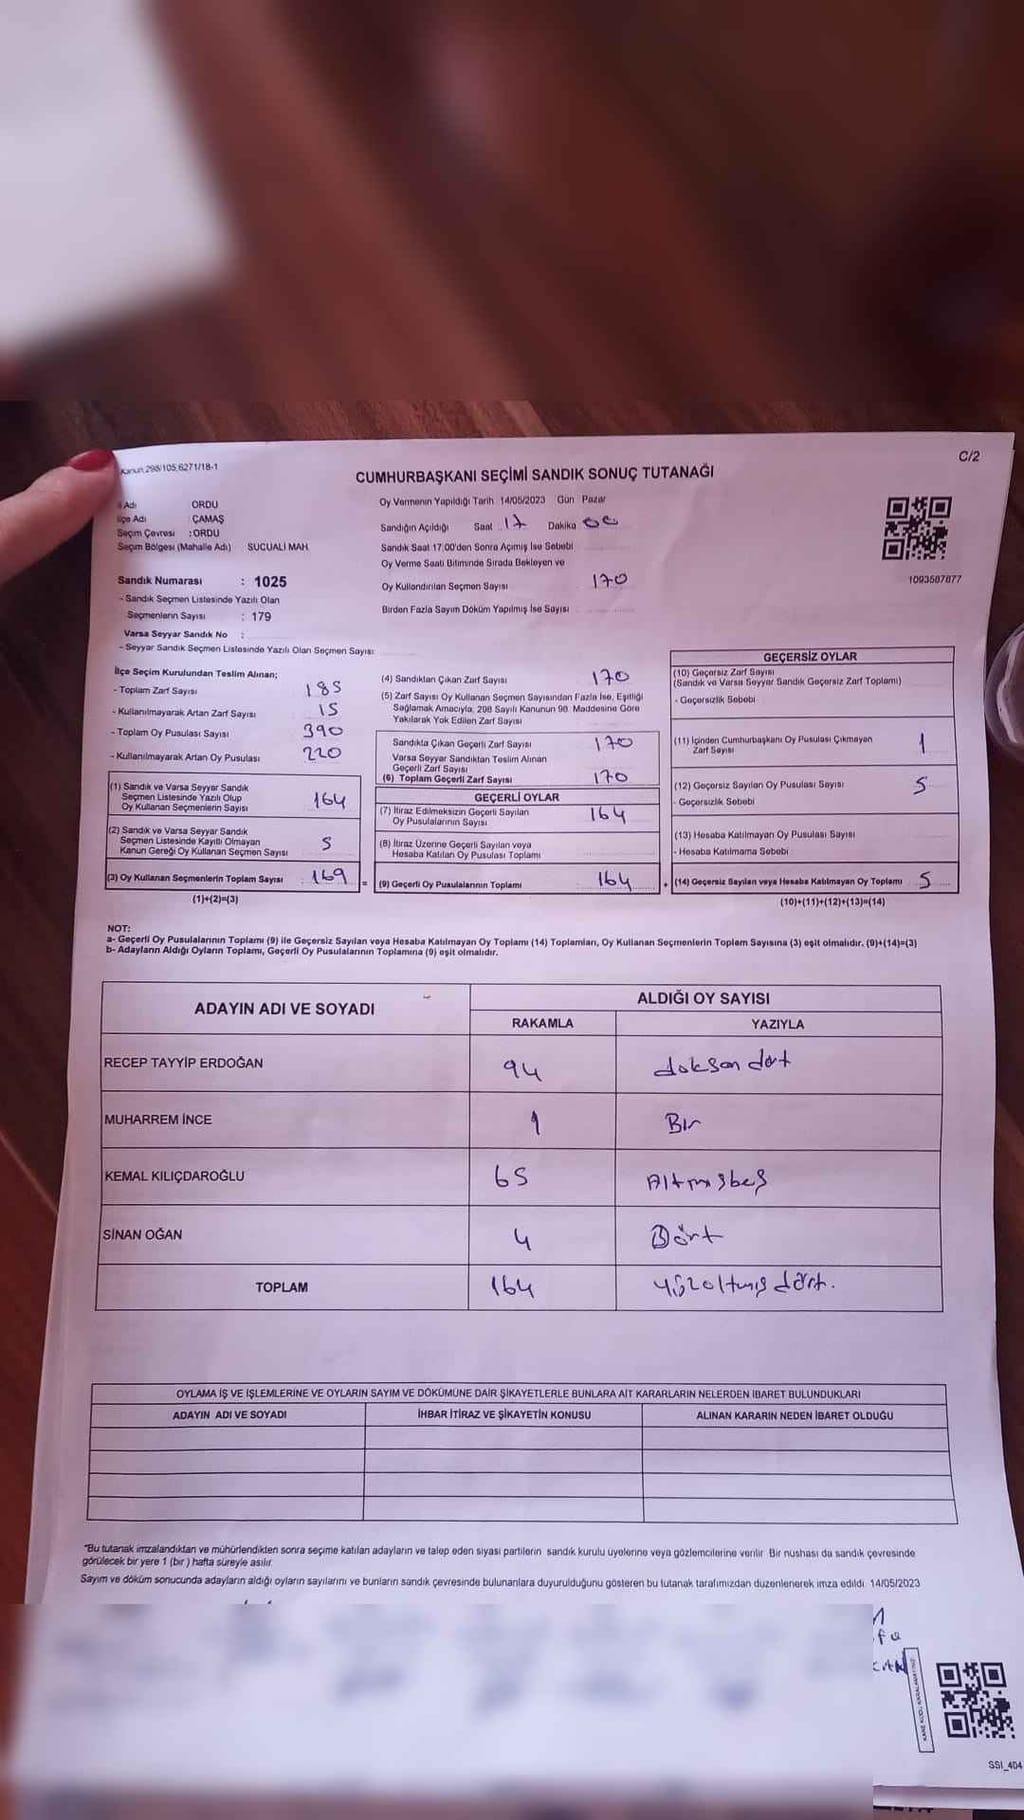 Kanun 298/105,6271/18-1
C/2
CUMHURBAŞKANI SEÇİMİ SANDIK SONUÇ TUTANAĞI
İl Adı ORDU
İlçe Adı ÇAMAŞ
Seçim Çevresi : ORDU
Seçim Bölgesi (Mahalle Adı) SUCUALİ MAH.
Sandık Numarası : 1025
- Sandık Seçmen Listesinde Yazılı Olan
Seçmenlerin Sayısı : 179
Varsa Seyyar Sandık No :
- Seyyar Sandık Seçmen Listesinde Yazılı Olan Seçmen Sayısı:
Oy Vermenin Yapıldığı Tarih 14/05/2023 Gün Pazar
Sandığın Açıldığı Saat 17 Dakika 00
Sandık Saat 17:00'den Sonra Açımış İse Sebebi
Oy Verme Saati Bitiminde Sırada Bekleyen ve
Oy Kullandırılan Seçmen Sayısı 170
Birden Fazla Sayım Döküm Yapılmış İse Sayısı
1093587877
İlçe Seçim Kurulundan Teslim Alınan;
- Toplam Zarf Sayısı 185
- Kullanılmayarak Artan Zarf Sayısı 15
- Toplam Oy Pusulası Sayısı 390
- Kullanılmayarak Artan Oy Pusulası 220
(1) Sandık ve Varsa Seyyar Sandık
Seçmen Listesinde Yazılı Olup
Oy Kullanan Seçmenlerin Sayısı 164
(2) Sandık ve Varsa Seyyar Sandık
Seçmen Listesinde Kayıtlı Olmayan
Kanun Gereği Oy Kullanan Seçmen Sayısı 5
(3) Oy Kullanan Seçmenlerin Toplam Sayısı 169 =
(1)+(2)=(3)
(4) Sandıktan Çıkan Zarf Sayısı 170
(5) Zarf Sayısı Oy Kullanan Seçmen Sayısından Fazla İse, Eşitliği
Sağlamak Amacıyla, 298 Sayılı Kanunun 98. Maddesine Göre
Yakılarak Yok Edilen Zarf Sayısı
Sandıkta Çıkan Geçerli Zarf Sayısı 170
Varsa Seyyar Sandıktan Teslim Alınan
Geçerli Zarf Sayısı
(6) Toplam Geçerli Zarf Sayısı 170
GEÇERLİ OYLAR
(7) İtiraz Edilmeksizin Geçerli Sayılan
Oy Pusulalarının Sayısı 164
(8) İtiraz Üzerine Geçerli Sayılan veya
Hesaba Katılan Oy Pusulası Toplamı
(9) Geçerli Oy Pusulalarının Toplamı 164 +
GEÇERSİZ OYLAR
(10) Geçersiz Zarf Sayısı
(Sandık ve Varsa Seyyar Sandık Geçersiz Zarf Toplamı)
- Geçersizlik Sebebi
(11) İçinden Cumhurbaşkanı Oy Pusulası Çıkmayan
Zarf Sayısı 1
(12) Geçersiz Sayılan Oy Pusulası Sayısı 5
- Geçersizlik Sebebi
(13) Hesaba Katılmayan Oy Pusulası Sayısı
- Hesaba Katılmama Sebebi
(14) Geçersiz Sayılan veya Hesaba Katılmayan Oy Toplamı 5
(10)+(11)+(12)+(13)=(14)
NOT:
a- Geçerli Oy Pusulalarının Toplamı (9) ile Geçersiz Sayılan veya Hesaba Katılmayan Oy Toplamı (14) Toplamları, Oy Kullanan Seçmenlerin Toplam Sayısına (3) eşit olmalıdır. (9)+(14)=(3)
b- Adayların Aldığı Oyların Toplamı, Geçerli Oy Pusulalarının Toplamına (9) eşit olmalıdır.
ADAYIN ADI VE SOYADI ALDIĞI OY SAYISI
RAKAMLA YAZIYLA
RECEP TAYYİP ERDOĞAN 94 doksan dört
MUHARREM İNCE 1 Bir
KEMAL KILIÇDAROĞLU 65 Altmışbeş
SİNAN OĞAN 4 Dört
TOPLAM 164 yüzaltmış dört.
OYLAMA İŞ VE İŞLEMLERİNE VE OYLARIN SAYIM VE DÖKÜMÜNE DAİR ŞİKAYETLERLE BUNLARA AİT KARARLARIN NELERDEN İBARET BULUNDUKLARI
ADAYIN ADI VE SOYADI İHBAR İTİRAZ VE ŞİKAYETİN KONUSU ALINAN KARARIN NEDEN İBARET OLDUĞU
"Bu tutanak imzalandıktan ve mühürlendikten sonra seçime katılan adayların ve talep eden siyasi partilerin sandık kurulu üyelerine veya gözlemcilerine verilir. Bir nüshası da sandık çevresinde
görülecek bir yere 1 (bir ) hafta süreyle asılır.
Sayım ve döküm sonucunda adayların aldığı oyların sayılarını ve bunların sandık çevresinde bulunanlara duyurulduğunu gösteren bu tutanak tarafımızdan düzenlenerek imza edildi. 14/05/2023
KARE KODU KARALAMAYINIZ
SSI_404